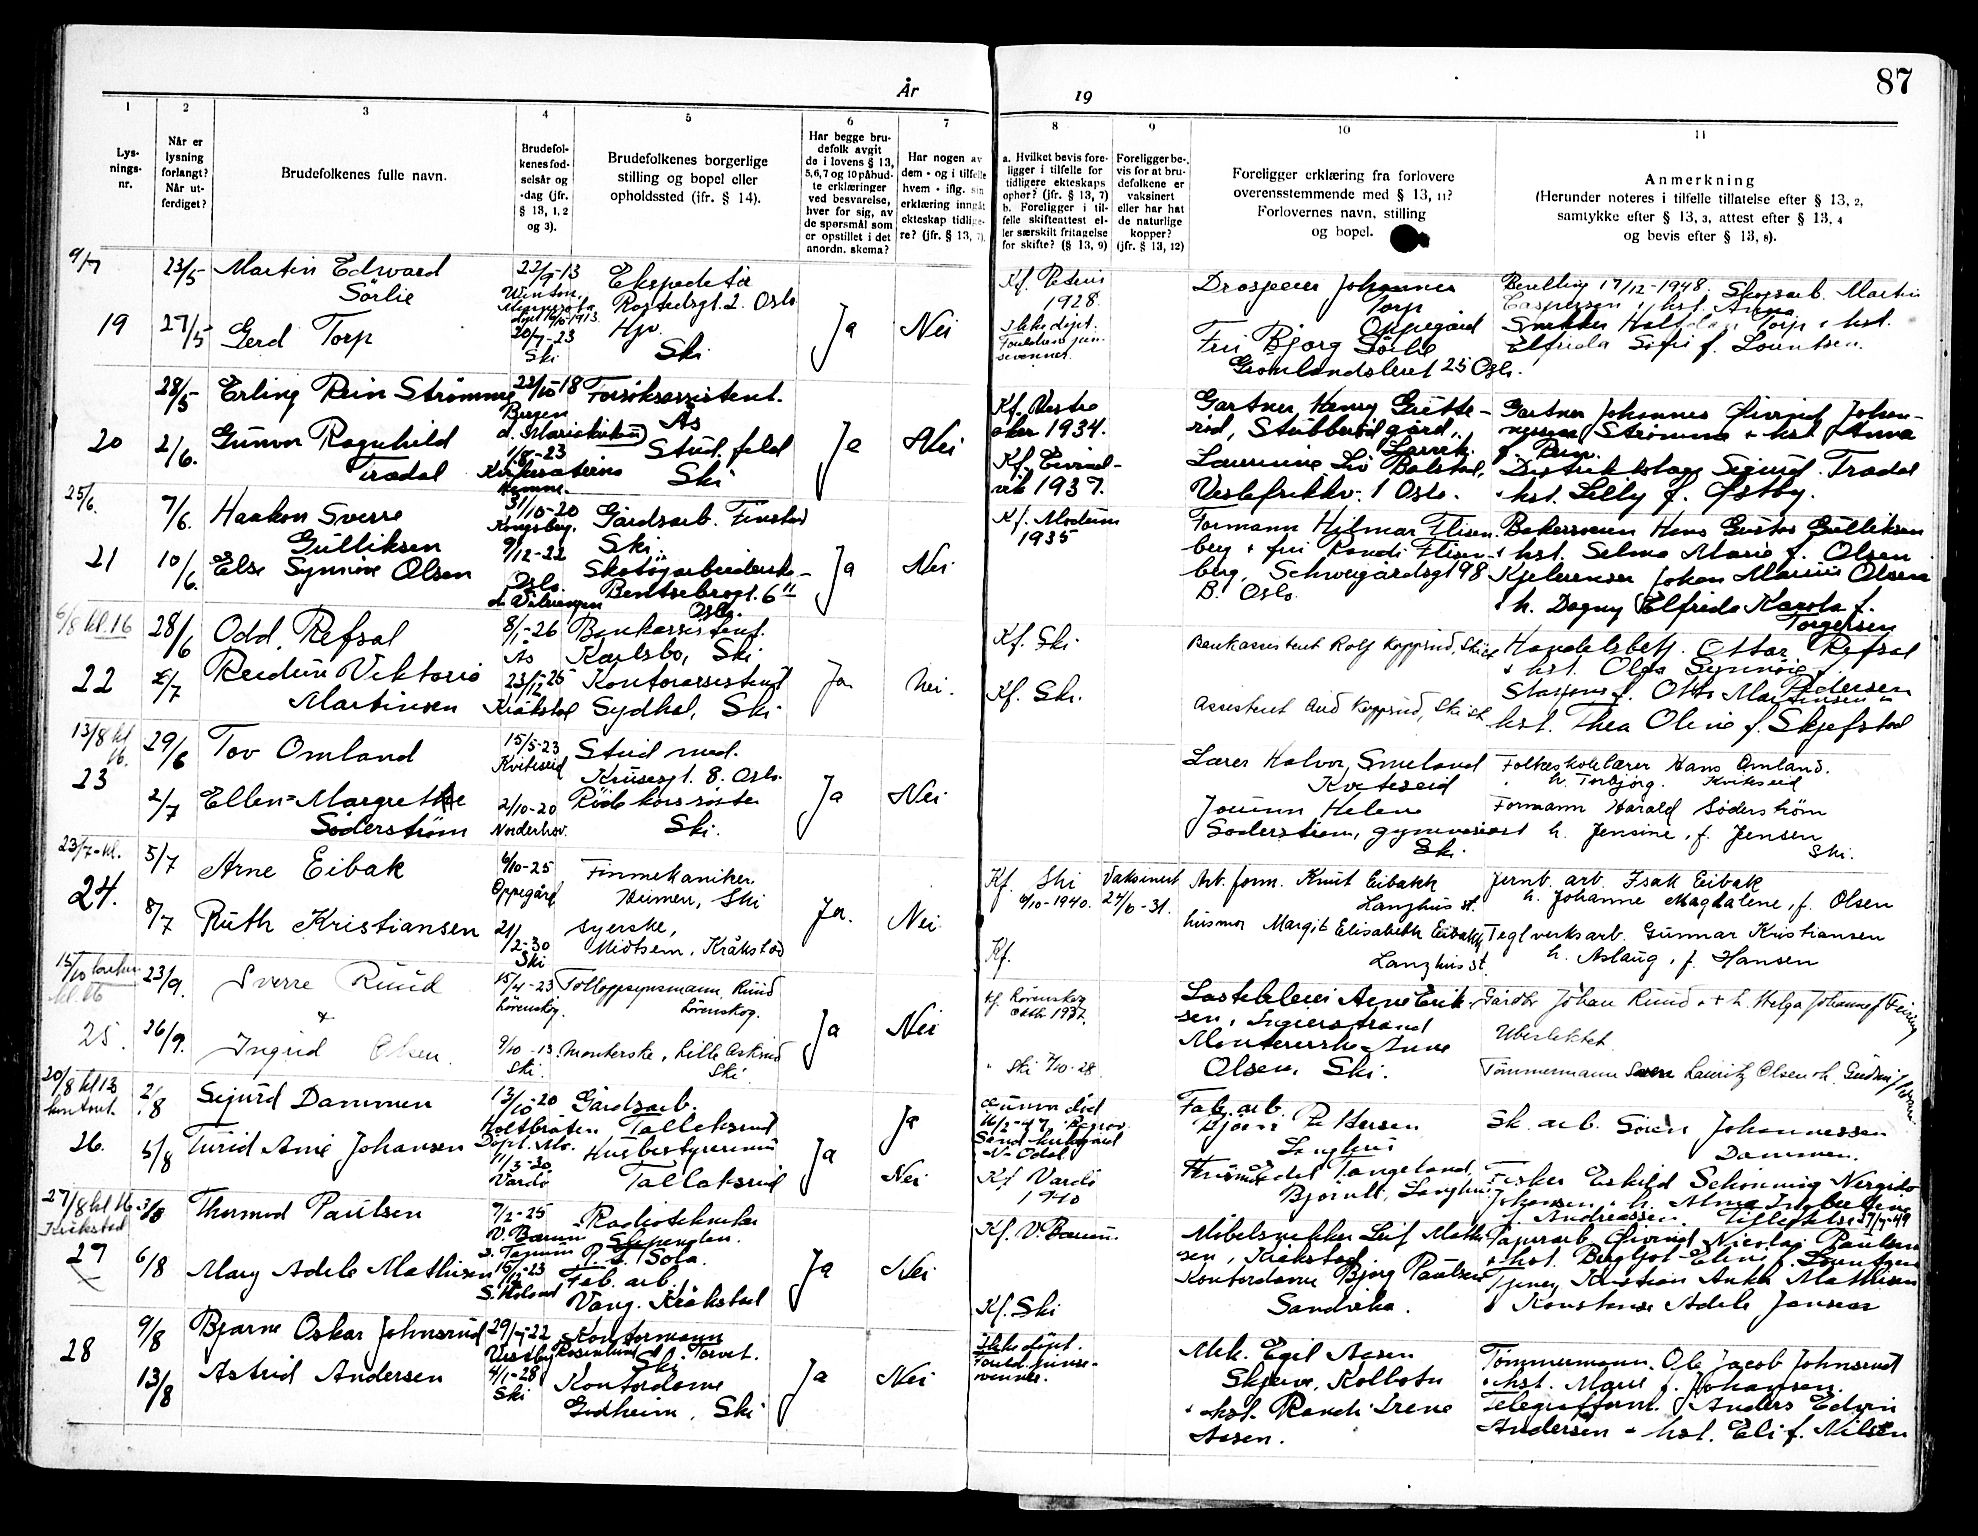 87
År
19
1
2
3
4
5
6
7
8
9
10
11
Lys-
nings-
nr.
Når er
lysning
forlangt?
Når ut-
ferdiget?
Brudefolkenes fulle navn.
Brudefol-
kenes fød-
selsår og
-dag (jfr.
§ 13, 1, 2
og 3).
Brudefolkenes borgerlige
stilling og bopel eller
opholdssted (jfr. § 14).
Har begge bru-
defolk avgit
de i lovens § 13,
5,6,7 og 10 påbud-
te erklæringer
ved besvarelse,
hver for sig, av
de spørsmål som
er opstillet i det
anordn. skema?
Har nogen av
dem - og i tilfelle
hvem - iflg. sin
erklæring inngåt
ekteskap tidlige-
re? (jfr. § 13, 7).
a. Hvilket bevis fore-
ligger i tilfelle for
tidligere ekteskaps
ophør? (jfr. § 13, 7)
b. Foreligger i til-
felle skifteattest el-
ler særskilt fritagelse
for skifte? (§ 13, 9)
Foreligger be-
vis for at bru-
defolkene er
vaksinert
eller har hat
de naturlige
kopper?
(jfr. § 13, 12)
Foreligger erklæring fra forlovere
overensstemmende med § 13, 11?
Forlovernes navn, stilling
og bopel.
Anmerkning
(Herunder noteres i tilfelle tillatelse efter § 13, 2,
samtykke efter § 13, 3, attest efter § 13, 4
og bevis efter § 13, 8).
9/7
19
23/5
27/5
Martin Edward
Sørlie
Gerd Torp
22/9-13
20/7-23
Ski
Ekspeditør
Rostedsgt. 2. Oslo
Hjv.
Ski
Ja
Nei
1928
Ikke døpt.
Drosjeeier Johannes
Torp
Oppegård
Fru Bjørg Sørlie
Grønlandsleiret 25 Oslo.
Bevilling 17/12-1948. Skogsarb. Martin
Caspersen + hst. Anna
Snekker Halfdan Torp + hst.
Elfrida Sofie f. Lorentsen.
20
28/5
2/6.
Erling Rein Strømme
Gunvor Ragnhild
Trædal
22/10-18
Bergen
1/8-23
Hemne.
Forsøksassistent.
Ås
Stud. filol
Ski
Ja
Nei
Kf. Vestre
Aker 1934.
Kf. Eivind-
vik 1937.
Gartner Henry Grette-
rød, Stubberød gård,
Larvik.
Vestefrikkv. 1 Oslo.
Gartner Johannes Øivind Johan-
nessen Strømme + hst. Anna
f. Rein.
Distriktslege Sigurd Trædal
+ hst. Lilly f. Østby.
25/6.
21
7/6.
10/6.
Haakon Sverre
Gulliksen
Else Synnøve Olsen
31/10-20
Kongsberg.
9/12-22
Oslo
d. Vålerengen
Gårdsarb. Finstad
Ski.
Skotøyarbeiderske
Bentsebrogt. 6 II
Oslo.
Ja
Nei
Kf. Modum
1935
Formann Hilmar Flisen-
berg + fru Randi Flisen-
berg, Schweigårdsgt 98
B. Oslo
Bakersvenn Hans Gustav Gulliksen
+ hst. Selma Marie f. Olsen
Kjelerenser Johan Marius Olsen
+ h. Dagny Elfrida Karola f.
Torgersen
6/8 kl. 16
22
28/6
2/7
Odd Refsal
Reidun Viktoria
Martinsen
8/1-26
Ås
23/12-25
Kråkstad
Bankassistent.
Karlsbo, Ski
Kontorassistent
Sydhel, Ski
Ja
Nei.
Kf. Ski
Kf. Ski.
Bankassistent Rolf Koppsrud, Ski st
Assistent Aud Koppsrud, Ski st.
Handelsbetj. Ottar Refsal
+ hst. Olga Synnøve f.
Pedersen
Stasjonsf. Otto Martinsen
hst. Thea Oline f. Skjefstad
13/8 kl
16.
23
29/6
2/7
Tov Omland
Ellen-Margrethe
Søderstrøm
15/5-23
Kviteseid
2/10-20
Norderhov.
Stud med.
Kruesgt. 8. Oslo.
Røde kors søster
Ski.
Ja
Nei
Lærer Halvor Smeland
Kviteseid
Journ Helene
Søderstrøm, gymnasiast
Ski.
Folkeskolelærer Hans Omland.
h. Torbjørg. Kviteseid
Formann Harald Søderstrøm
h. Jensine, f. Jensen
Ski.
23/7-kl.
24.
5/7
8/7
Arne Eibak
Ruth Kristiansen
6/10-25
Oppegård
21/2-30
Ski
Finmekaniker
Heimen, Ski
syerske,
Midtsem, Kråkstad
Ja.
Nei
Kf. Ski
6/10-1940.
Kf.
Vaksinert
24/6-31.
Arb. form. Knut Eibakk
Langhus st.
husmor Margit Elisabeth Eibakk
Langhus st.
Jernb. arb. Isak Eibak
h. Johanne Magdalene, f. Olsen
Teglverksarb. Gunnar Kristiansen
h. Aslaug, f. Hansen
15/10
kl 16
25.
23/9.
26/9.
Sverre Ruud
+
Ingrid Olsen.
15/4-23
Lørenskog.
9/10-13.
Ski.
Tolloppsynsmann, Ruud
Lørenskog.
Monterske, Lille Askerud
Ski
Ja
Nei
Kf. Lørenskog
1937.
" Ski 7/10-28.
Lastebileier Arne Erik-
sen, Ingierstrand
Monterske Anne
Olsen, Ski.
Gårdbr Johan Ruud + h. Helga Johanne f Feiring
Ubeslektet.
Tømmermann Lauritz Olsen + h. Gudrun f
20/8 kl 13
kontoret.
26.
2/8
5/8
Sigurd Dammen
Turid Arne Johansen
13/10-20
Holtbråten
11/3-30.
Vardø
Gårdsarb.
Tallaksrud
Husbestyrerinne
Tallaksrud
Ja
Ja
Nei
16/2-47
N. Odal
Kf Vardø
1940
Fab. arb.
Bjørn Pettersen
Langhus
Bjørnli, Langhus
Sk. arb. Sören Johannessen
Dammen.
Fisker Eskild Schønning Nergård
f. Andreassen.
27/8 kl 16
Kråkstad
27
3/8
6/8
Thormod Paulsen
Mary Adele Mathisen
7/2-25
V. Bærum
S. Høland
Radiotekniker
Sola.
Fab. arb.
Vang. Kråkstad
Ja
Nei
Kf. V. Bærum.
Kf. Ski
Møbelsnekker Leif Mathi-
sen, Kråkstad
Kontordame Bjørg Paulsen
Sandvika.
Papirarb. Øivind Nicolai Paulsen
+ hst. Bergljot Eline f. Lorentzen
Kristian Anker Mathisen
+ Konstanse Adele Jansen
28
9/8
13/8
Bjarne Oskar Johnsrud
Astrid Andersen
29/7-22
Vestby
4/1-28
Ski
Kontormann
Rosenlund Torvet.
Ski
Kontordame
Godheim, Ski
Ja
Nei
Ikke døpt.
Mek. Egil Aasen
Skjerve, Kolbotn
+ hst. Randi Irene
Aasen.
Tømmermann Ole Jacob Johnsrud
+ hst. Marie f. Johansen.
Telegrafform. Anders Edvin
Andersen + hst. Eli f. Nilsen